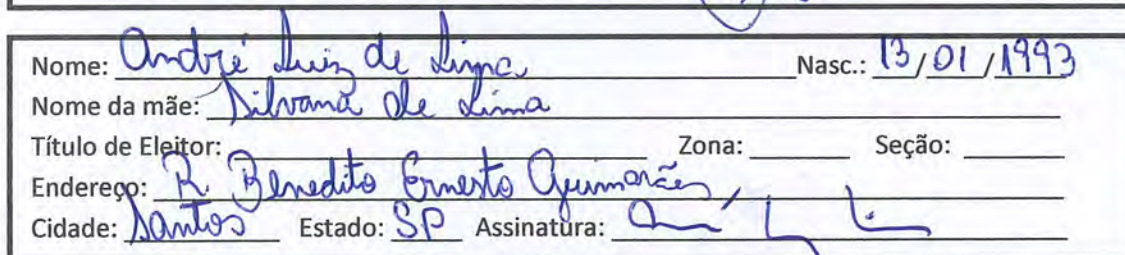 Nome: André Luiz de Lima Nasc.: 13/01/1993
Nome da mãe: Silvana de Lima
Título de Eleitor: Zona: Seção:
Endereço: R. Benedito Ernesto Guimarães,
Cidade: Santos Estado: SP Assinatura: